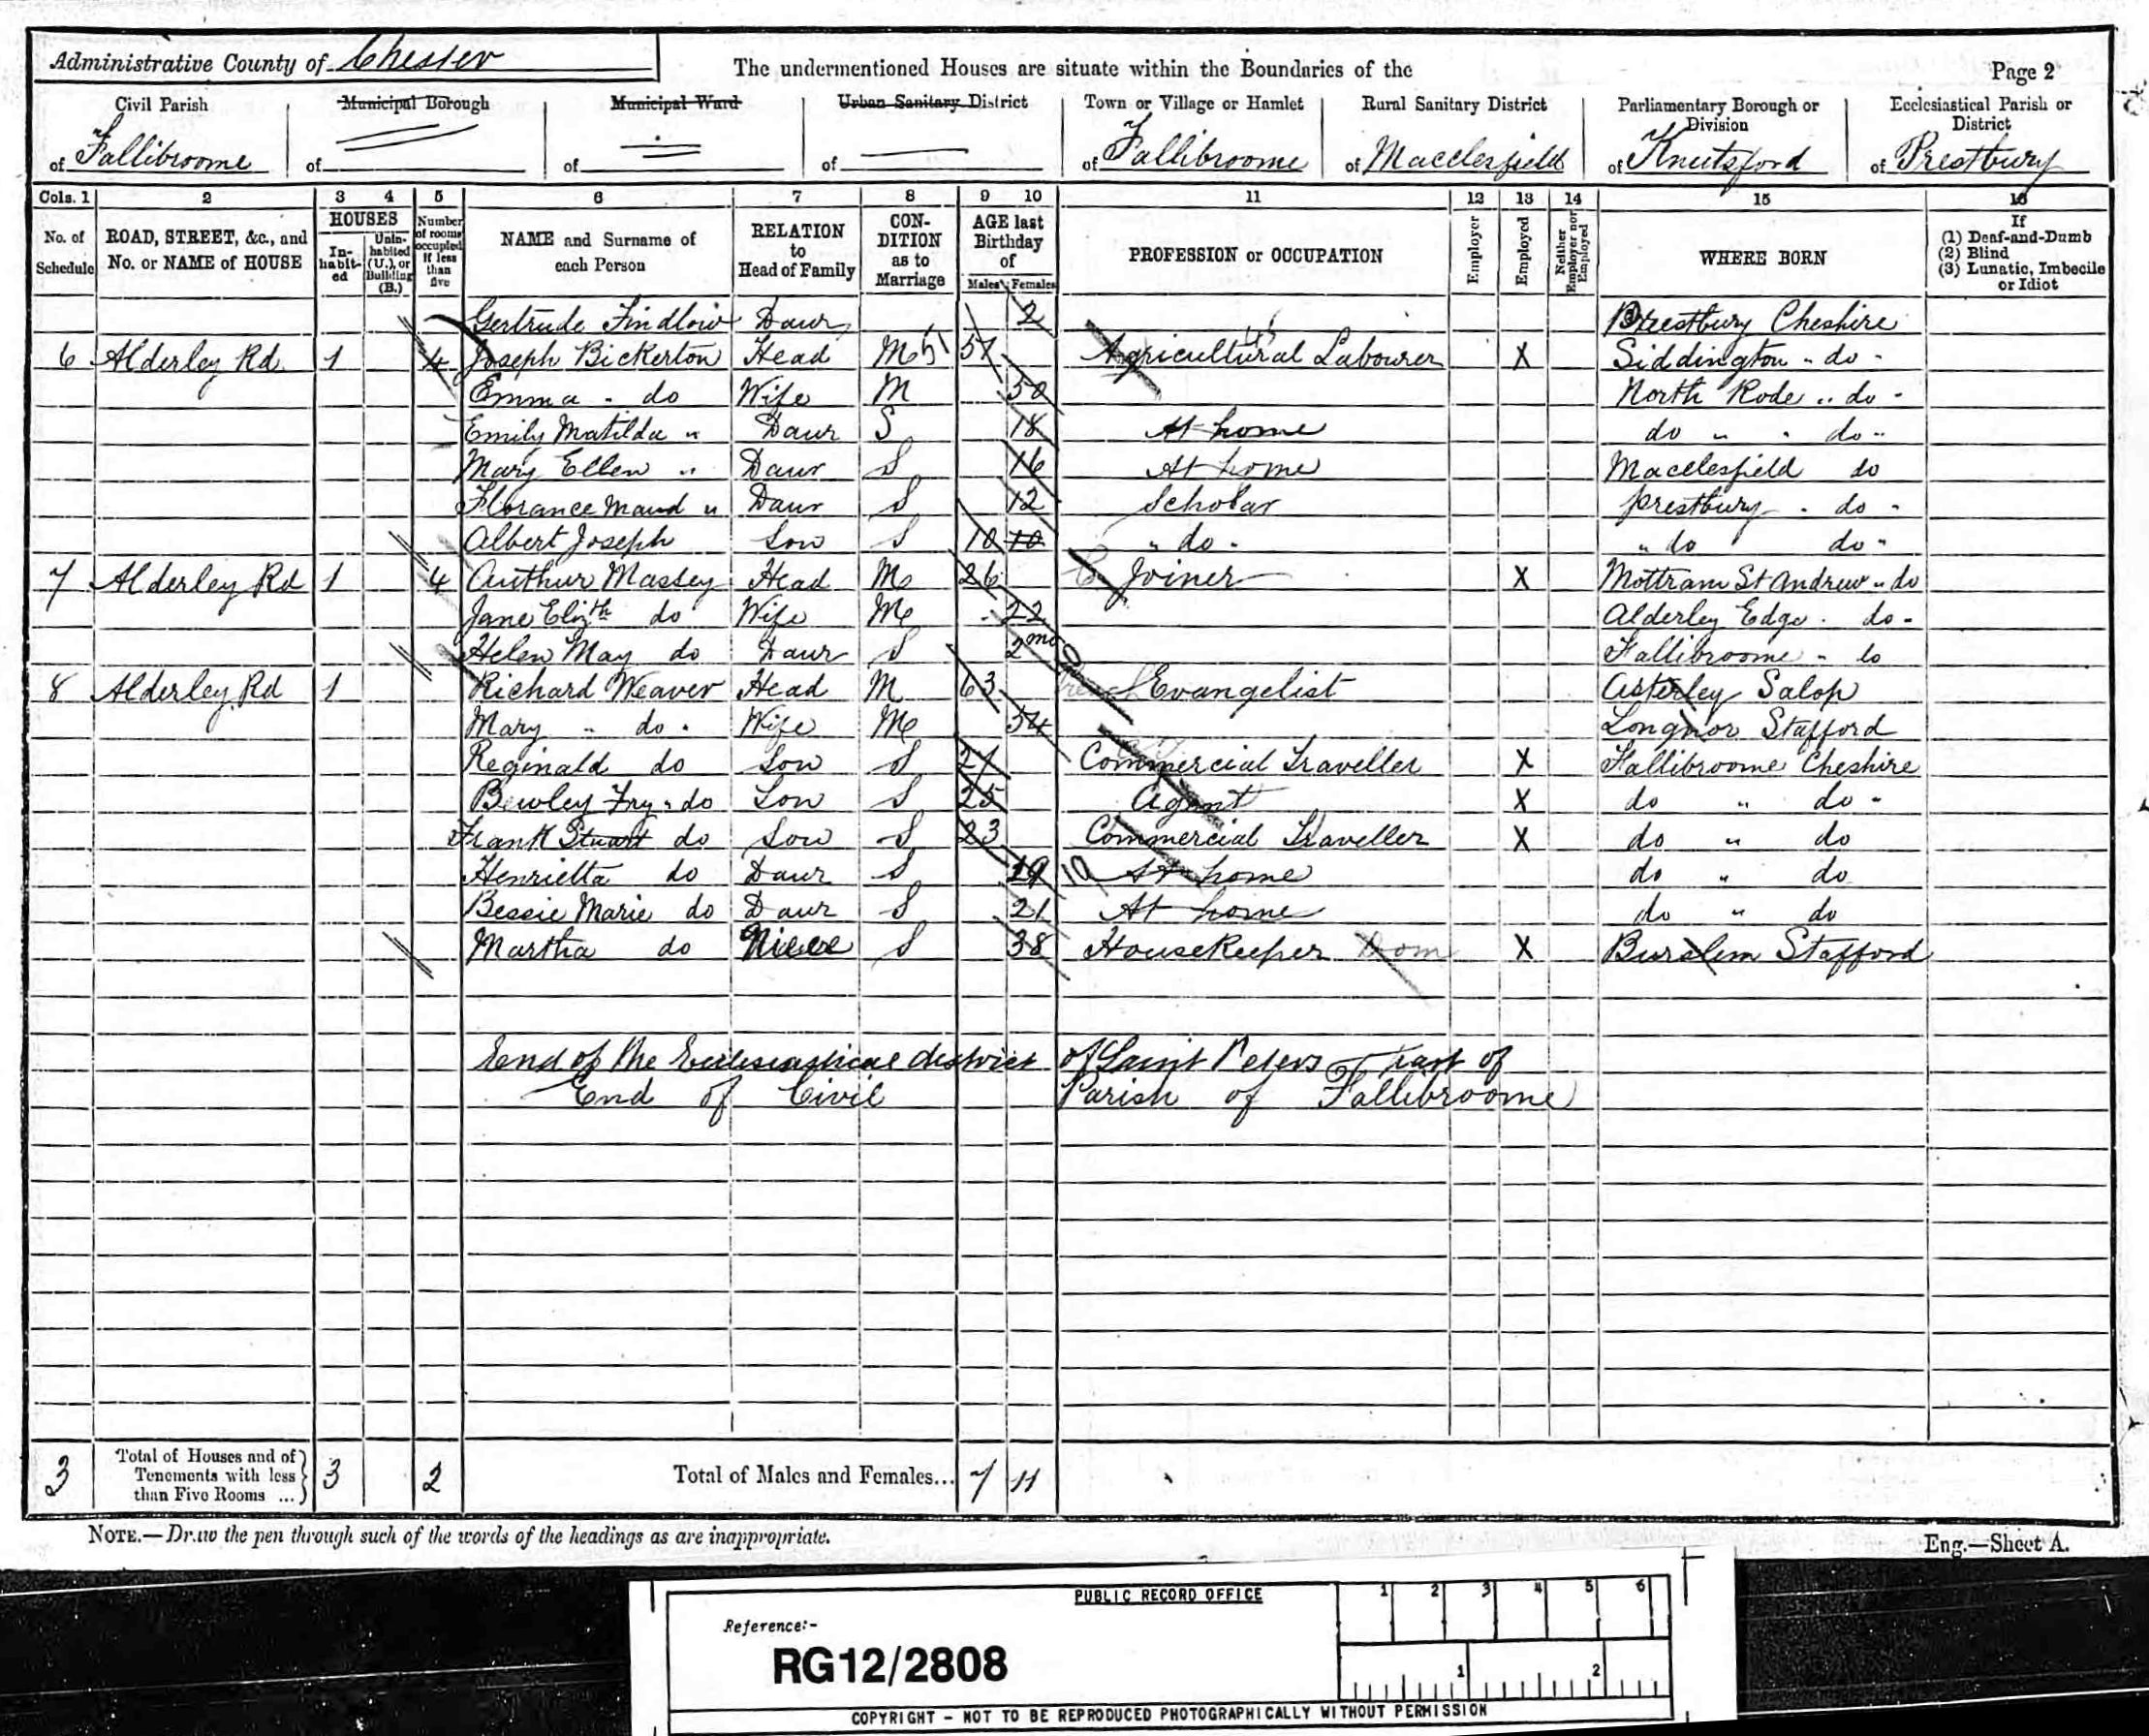 Administrative County of Chester
The undermentioned Houses are situate within the Boundaries of the
Page 2
Civil Parish of Fallibroome
Municipal Borough of
Municipal Ward of
Urban Sanitary District of
Town or Village or Hamlet of Fallibroome
Rural Sanitary District of Macclesfield
Parliamentary Borough or Division of Knutsford
Ecclesiastical Parish or District of Prestbury
Cols. 1 2 3 4 5 6 7 8 9 10 11 12 13 14 15 16
No. of Schedule
ROAD, STREET, &c., and No. or NAME of HOUSE
HOUSES
In-habit-ed
Unin-habited (U.), or Building (B.)
Number of rooms occupied if less than five
NAME and Surname of each Person
RELATION to Head of Family
CON-DITION as to Marriage
AGE last Birthday of
Males Females
PROFESSION or OCCUPATION
Employer
Employed
Neither Employer nor Employed
WHERE BORN
If
(1) Deaf-and-Dumb
(2) Blind
(3) Lunatic, Imbecile or Idiot
Gertrude Findlow Daur 2 Prestbury Cheshire
6 Alderley Rd 1 4 Joseph Bickerton Head M 51 51 Agricultural Labourer X Siddington - do -
Emma - do Wife M 50 North Rode .. do -
Emily Matilda " Daur S 18 At home do " - do "
Mary Ellen " Daur S 16 At home Macclesfield do
Florance Maud " Daur S 12 Scholar Prestbury - do -
Albert Joseph Son S 10 10 " do - " do do "
7 Alderley Rd 1 4 Authur Massey Head M 26 Joiner X Mottram St Andrew " do
Jane Elizth do Wife M 22 Alderley Edge . do -
Helen May do Daur S 2 mo Fallibroome - do
8 Alderley Rd 1 Richard Weaver Head M 63 Evangelist Asterley Salop
Mary " do . Wife M 54 Longnor Stafford
Reginald do Son S 27 Commercial Traveller X Fallibroome Cheshire
Bewley Fry " do Son S 25 Agent X do " do -
Frank Stuart do Son S 23 Commercial Traveller X do " do
Henrietta do Daur S 19 19 At home do " do
Bessie Marie do Daur S 21 At home do " do
Martha do Niece S 38 Housekeeper Dom X Burslem Stafford
End of the Ecclesiastical district of Saint Peters Part of
End of Civil Parish of Fallibroome
3 Total of Houses and of Tenements with less than Five Rooms ... 3 2 Total of Males and Females... 7 11
NOTE.—Draw the pen through such of the words of the headings as are inappropriate.
Eng.—Sheet A.
PUBLIC RECORD OFFICE
1 2 3 4 5 6
Reference:-
RG12/2808
1 2
COPYRIGHT - NOT TO BE REPRODUCED PHOTOGRAPHICALLY WITHOUT PERMISSION